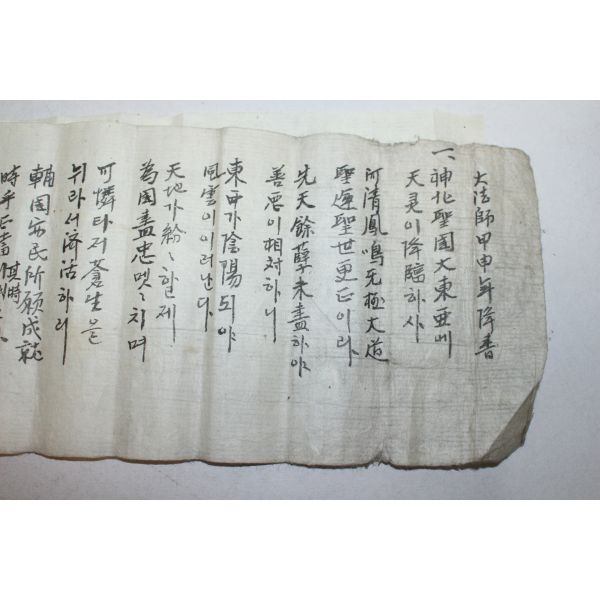 大法師甲申年降書
一、神化聖国大東亜에
天灵이降臨하사
河清鳳鳴无極大道
聖運聖世更正이라
先天餘孽未盡하야
善悪이相対하니
東甲가陰陽되야
風雲이이러난다
天地가紛〻하올제
為国盡忠몟〻치며
可憐타저蒼生을
뉘라서済活하리
輔国安民所願成就
時乎正當其時